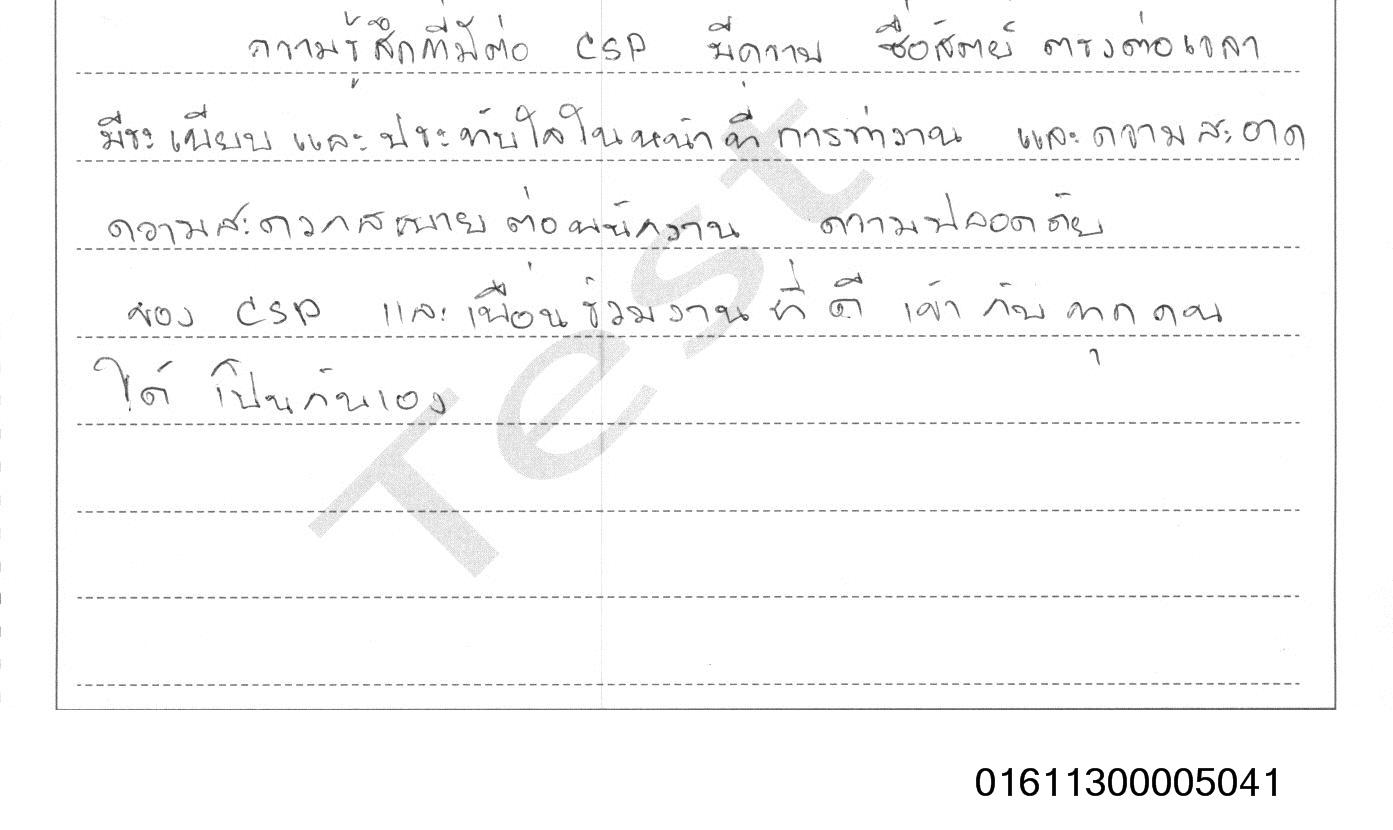 ความรู้สึกที่มีต่อ CSP มีความ ซื่อสัตย์ ตรงต่อเวลา
มีระเบียบ และประทับใจในหน้าที่การทำงาน และความสะอาด
ความสะดวกสบาย ต่อพนักงาน ความปลอดภัย
ของ CSP และเพื่อนร่วมงานที่ดี เข้ากับทุกคน
ได้ เป็นกันเอง
Test
01611300005041